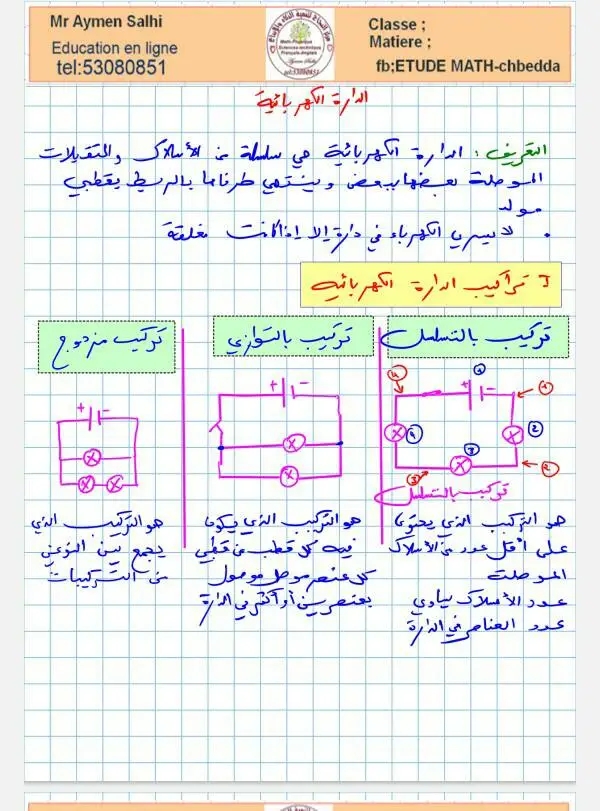 Mr Aymen Salhi
Education en ligne
tel:53080851
Classe ;
Matiere ;
fb;ETUDE MATH-chbedda
الدارة الكهربائية
التعريف : الدارة الكهربائية هي سلسلة من الأسلاك والثقيلات
الموصلة بعضها ببعض وينتهي طرفاها بالربط بقطبي
مولد
• لا يسري الكهرباء في دارة إلا إذا كانت مغلقة
I تراكيب الدارة الكهربائية
تركيب بالتسلسل
+ -
1
2
3
4
1
2
3
4
تركيب بالتسلسل
هو التركيب الذي يحتوي
على أقل عدد من الأسلاك
الموصلة
عدد الأسلاك يساوي
عدد العناصر في الدارة
تركيب بالتوازي
+ -
هو التركيب الذي يكون
فيه كل قطب من قطبي
كل عنصر موصل موصول
بعنصرين أو أكثر في الدارة
تركيب مزدوج
+ -
هو التركيب الذي
يجمع بين النوعين
من التركيبات